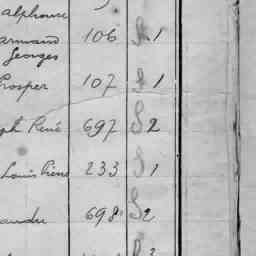 alphonse
armand 106 S 1
Georges
Prosper 107 S 1
ph René 697 S 2
Louis Pierre 233 S 1
andre 698 S 2